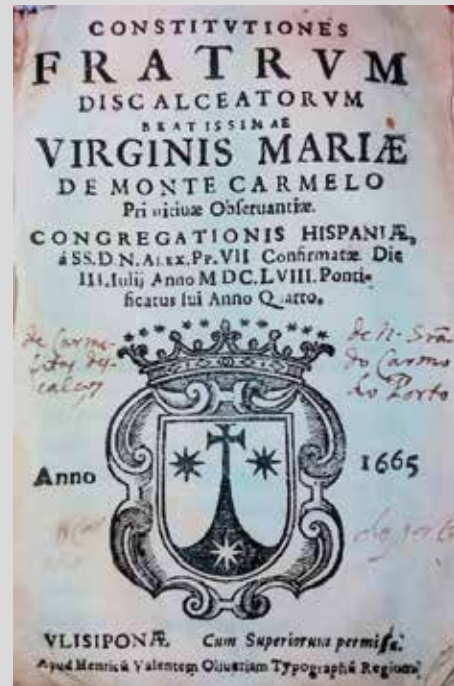 CONSTITVTIONES
FRATRVM
DISCALCEATORVM
BEATISSIMAE
VIRGINIS MARIÆ
DE MONTE CARMELO
Primitiuæ Obseruantiæ.
CONGREGATIONIS HISPANIÆ,
á SS. D. N. ALEX. PP. VII Confirmatæ Die
III. Iulij Anno M DC. LVIII. Ponti-
ficatus sui Anno Quarto.
de Carme-
litas des-
calços
de N. Srã
do Carmo
do Porto
Anno 1665
do porto
VLISIPONÆ. Cum Superiorum permissu.
Apud Henricũ Valentem Oliueriam Typographũ Regium.